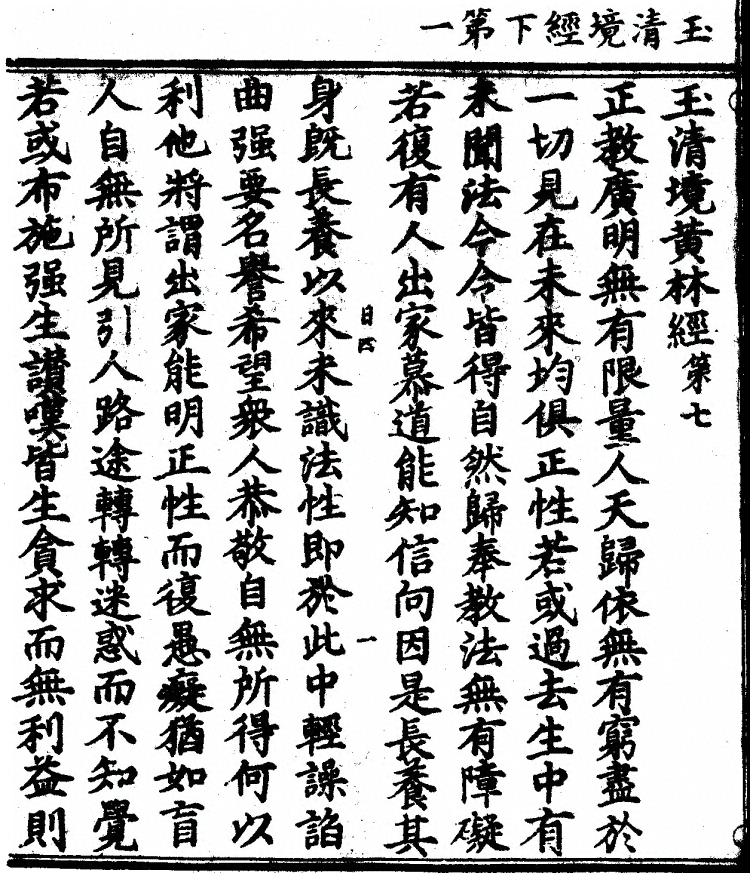 玉清境經下第一
玉清境黄林經第七
正教廣明無有限量人天歸依無有窮盡於
一切見在未來均俱正性若或過去生中有
未聞法今令皆得自然歸奉教法無有障礙
若復有人出家慕道能知信向因是長養其
日四
一
身既長養以來未識法性即於此中輕譟諂
曲强要名譽希望衆人恭敬自無所得何以
利他將謂出家能明正性而復愚癡猶如盲
人自無所見引人路途轉轉迷惑而不知覺
若或布施强生讃嘆皆生貪求而無利益則